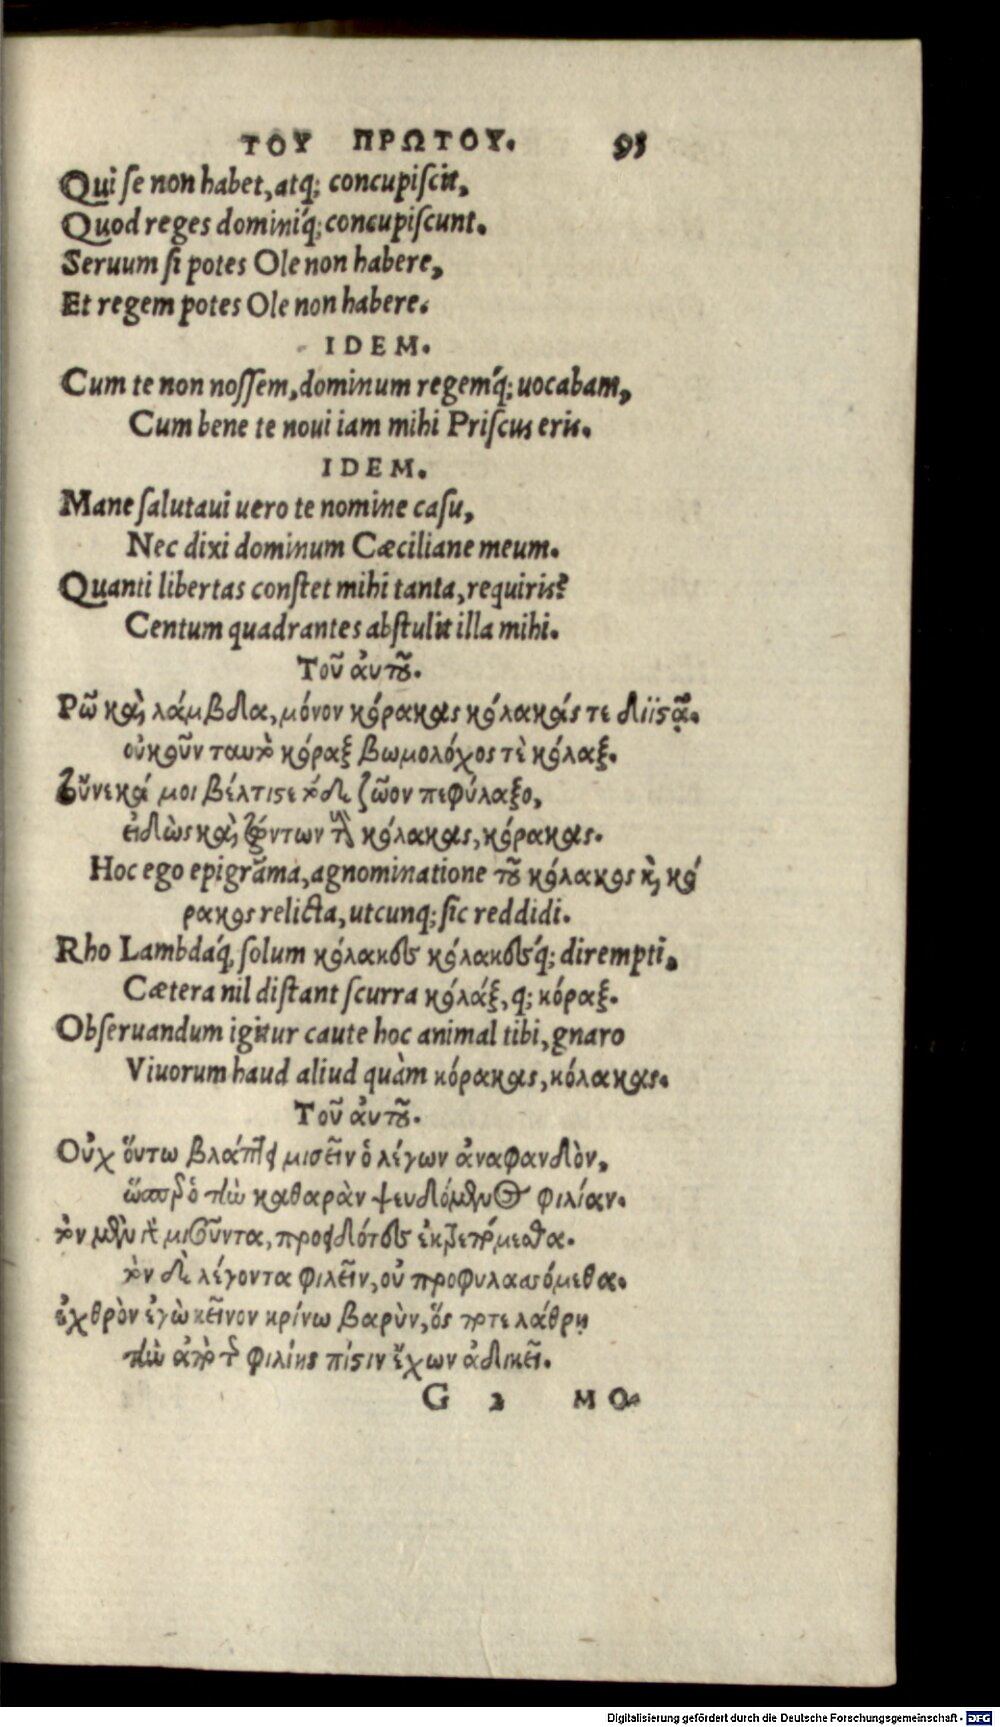 ΤΟΥ ΠΡΩΤΟΥ. 95
Qui se non habet, atq; concupiscit,
Quod reges dominíq; concupiscunt.
Seruum si potes Ole non habere,
Et regem potes Ole non habere.
IDEM.
Cum te non nossem, dominum regemq́; uocabam,
Cum bene te noui iam mihi Priscus eris.
IDEM.
Mane salutaui uero te nomine casu,
Nec dixi dominum Cæciliane meum.
Quanti libertas constet mihi tanta, requiris?
Centum quadrantes abstulit illa mihi.
Τοῦ ἀυτοῦ.
Ρῶ καὶ λάμβδα, μόνον κόρακας κόλακάς τε διϊςᾷ.
οὐκοῦν ταυτὸ κόραξ βωμολόχος τὲ κόλαξ.
τοὔνεκά μοι βέλτιςε τόδε ζῶον πεφύλαξο,
εἰδὼς καὶ ζώντων τοὺς κόλακας, κόρακας.
Hoc ego epigrãma, agnominatione τοῦ κόλακος κὶ κό
ρακος relicta, utcunq; sic reddidi.
Rho Lambdáq, solum κόλακες κόλακεςq́; dirempti,
Cætera nil distant scurra κόλάξ, q; κόραξ.
Obseruandum igitur caute hoc animal tibi, gnaro
Viuorum haud aliud quàm κόρακας, κόλακας.
Τοῦ ἀυτοῦ.
Οὐχ ὅυτω βλάπτει μισεῖν ὁ λέγων ἀναφανδὸν,
ὥσπερ ὁ τὴν καθαρὰν ψευδόμενος φιλίαν.
τὸν μὲν μισοῦντα, προειδότες ἐκτρετόμεθα.
τὸν δὲ λέγοντα φιλεῖν, οὐ προφυλασσόμεθα.
ἐχθρὸν ἐγὼ κεῖνον κρίνω βαρὺν, ὅς ποτε λάθρῃ
τὴν ἀπὸ τῆς φιλίης πίςιν ἔχων ἀδικεῖ.
G 2 ΜΟ-
Digitalisierung gefördert durch die Deutsche Forschungsgemeinschaft - DFG